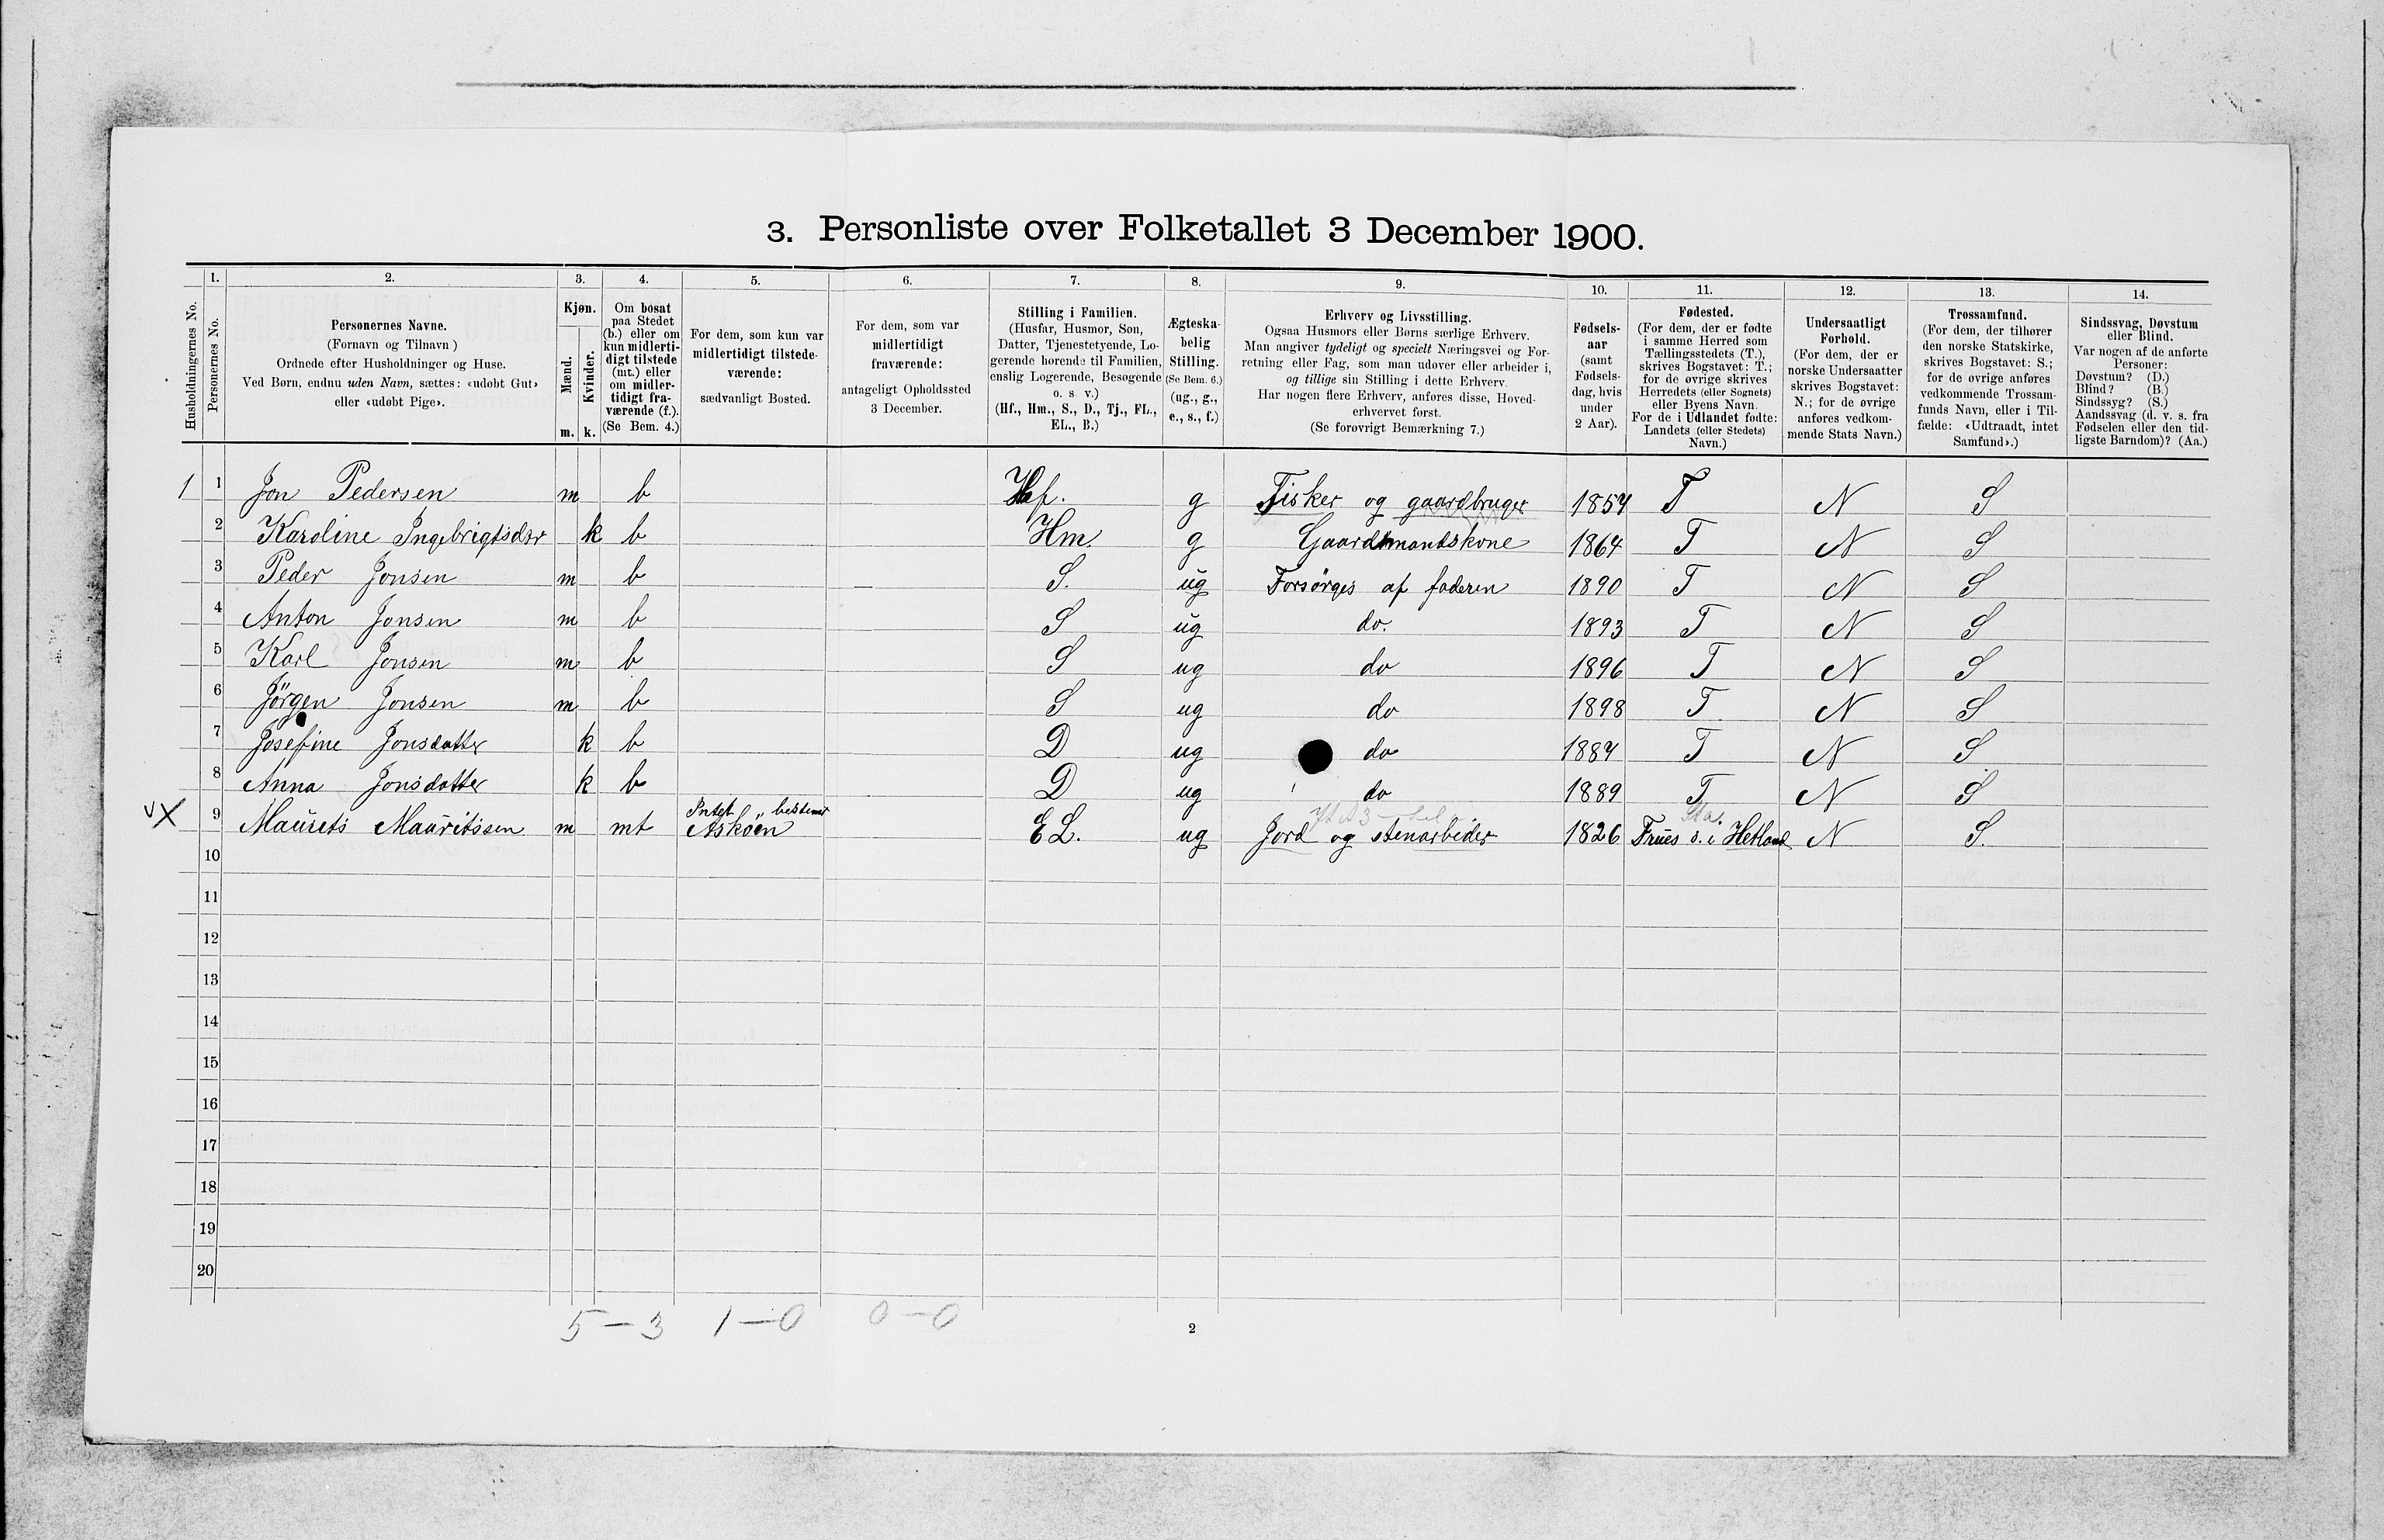 3. Personliste over Folketallet 3 December 1900.
1. 2. 3. 4. 5. 6. 7. 8. 9. 10. 11. 12. 13. 14.
Husholdningernes No.
Personernes No.
Personernes Navne.
(Fornavn og Tilnavn)
Ordnede efter Husholdninger og Huse.
Ved Børn, endnu uden Navn, sættes: «udøbt Gut»
eller «udøbt Pige».
Kjøn.
Mænd.
Kvinder.
m. k.
Om bosat
paa Stedet
(b.) eller om
kun midlerti-
digt tilstede
(mt.) eller
om midler-
tidigt fra-
værende (f.).
(Se Bem. 4.)
For dem, som kun var
midlertidigt tilstede-
værende:
sædvanligt Bosted.
For dem, som var
midlertidigt
fraværende:
antageligt Opholdssted
3 December.
Stilling i Familien.
(Husfar, Husmor, Søn,
Datter, Tjenestetyende, Lo-
gerende hørende til Familien,
enslig Logerende, Besøgende
o. s. v.)
(Hf., Hm., S., D., Tj., FL.,
EL., B.)
Ægteska-
belig
Stilling.
(Se Bem. 6.)
(ug., g.,
e., s., f.)
Erhverv og Livsstilling.
Ogsaa Husmors eller Børns særlige Erhverv.
Man angiver tydeligt og specielt Næringsvei og For-
retning eller Fag, som man udøver eller arbeider i,
og tillige sin Stilling i dette Erhverv.
Har nogen flere Erhverv, anføres disse, Hoved-
erhvervet først.
(Se forøvrigt Bemærkning 7.)
Fødsels-
aar
(samt
Fødsels-
dag, hvis
under
2 Aar).
Fødested.
(For dem, der er fødte
i samme Herred som
Tællingsstedets (T.),
skrives Bogstavet: T.;
for de øvrige skrives
Herredets (eller Sognets)
eller Byens Navn.
For de i Udlandet fødte:
Landets (eller Stedets)
Navn.)
Undersaatligt
Forhold.
(For dem, der er
norske Undersaatter
skrives Bogstavet:
N.; for de øvrige
anføres vedkom-
mende Stats Navn.)
Trossamfund.
(For dem, der tilhører
den norske Statskirke,
skrives Bogstavet: S.;
for de øvrige anføres
vedkommende Trossam-
funds Navn, eller i Til-
fælde: «Udtraadt, intet
Samfund».)
Sindssvag, Døvstum
eller Blind.
Var nogen af de anførte
Personer:
Døvstum? (D.)
Blind? (B.)
Sindssyg? (S.)
Aandssvag (d. v. s. fra
Fødselen eller den tid-
ligste Barndom)? (Aa.)
1 1 Jon Pedersen m b Hf. g Fisker og gaardbruger 1854 T N S
2 Karoline Ingebrigtsdtr k b Hm. g Gaardmandskone 1864 T N S
3 Peder Jonsen m b S. ug Forsörges af faderen 1890 T N S
4 Anton Jonsen m b S ug do. 1893 T N S
5 Karl Jonsen m b S ug do 1896 T N S
6 Jörgen Jonsen m b S ug do 1898 T N S
7 Josefine Jonsdatter k b D ug do 1884 T N S
8 Anna Jonsdatter k b D ug do 1889 T N S
Intet bestemt
vX 9 Maurits Mauritssen m mt Asköen EL. ug Jord og stenarbeider 1826 Frues s. i Hetland N S.
10
11
12
13
14
15
16
17
18
19
20
5 — 3 1 — 0 0 — 0
2